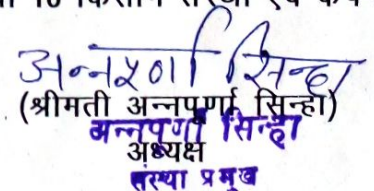 अन्नपूर्णा सिन्हा
(श्रीमती अन्नपूर्णा सिन्हा)
अन्नपूर्णा सिन्हा
अध्यक्ष
संस्था प्रमुख